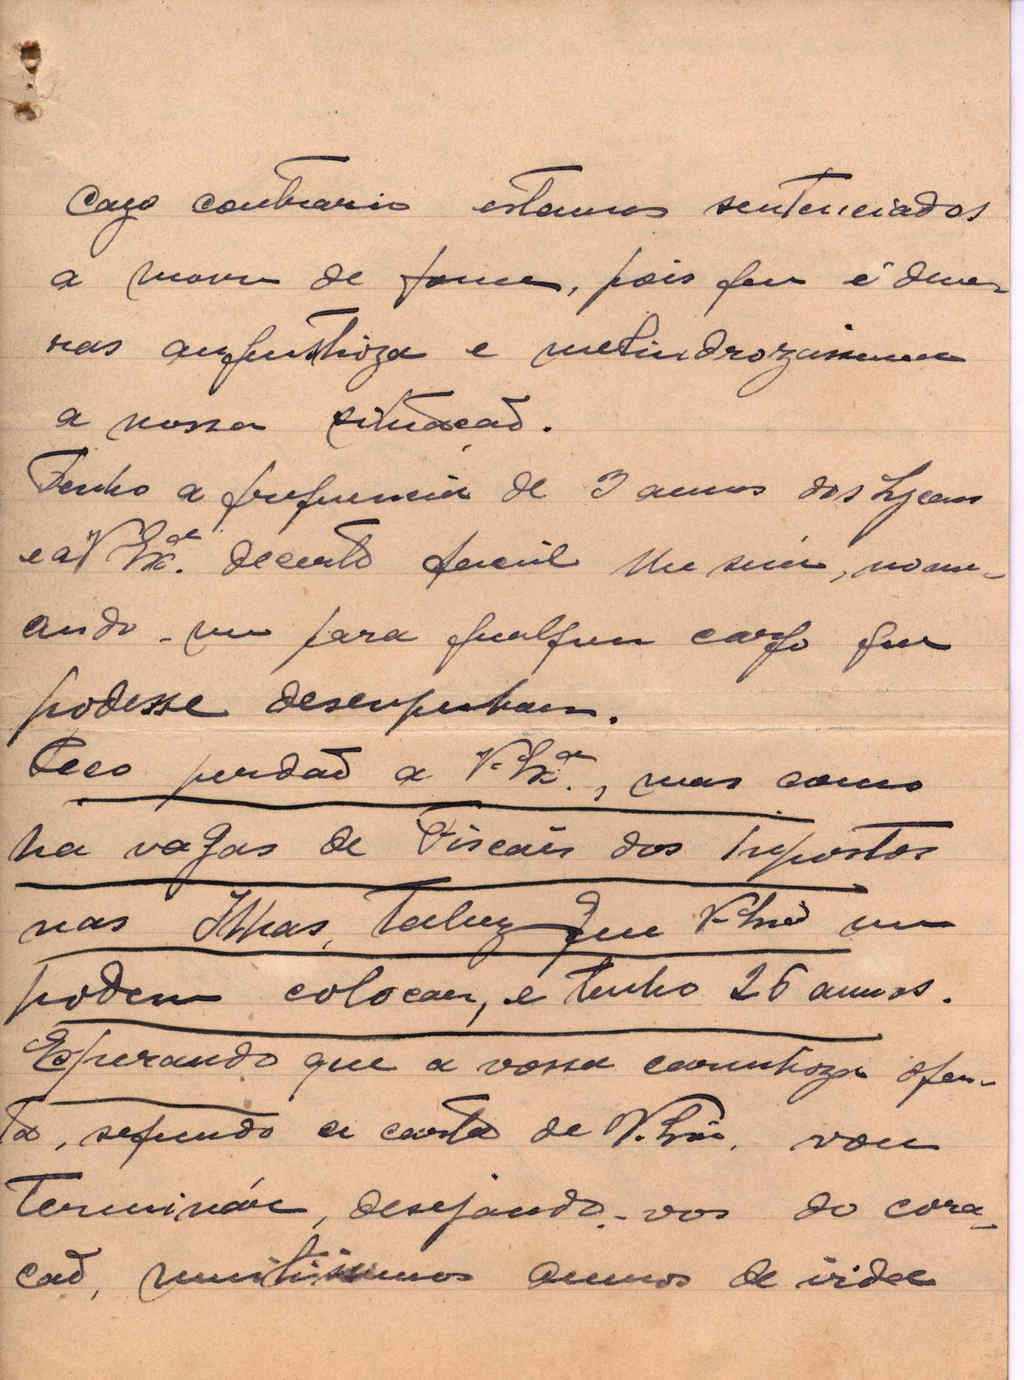 Cazo contrario estamos sentenciados
a morrer de fome, pois que é deve-
ras angustioza e melindrozissima
a nossa situacaõ.
Tenho a frequencia de 3 annos dos Lyceus
e a V. Ex.ª decerto facil lhe seria, nome-
ando-me para qualquer cargo que
podesse desempenhar.
Peco perdaõ a V. Ex.ª, mas como
ha vagas de Fiscaes dos Impostos
nas Ilhas, talvez que V. Ex.ª me
podem colocar, e tenho 26 annos.
Esperando que a vossa carinhoza ofer-
ta, segundo a carta de V. Ex.ª, vou
terminár, desejando-vos do cora-
caõ, muitissimos annos de vida